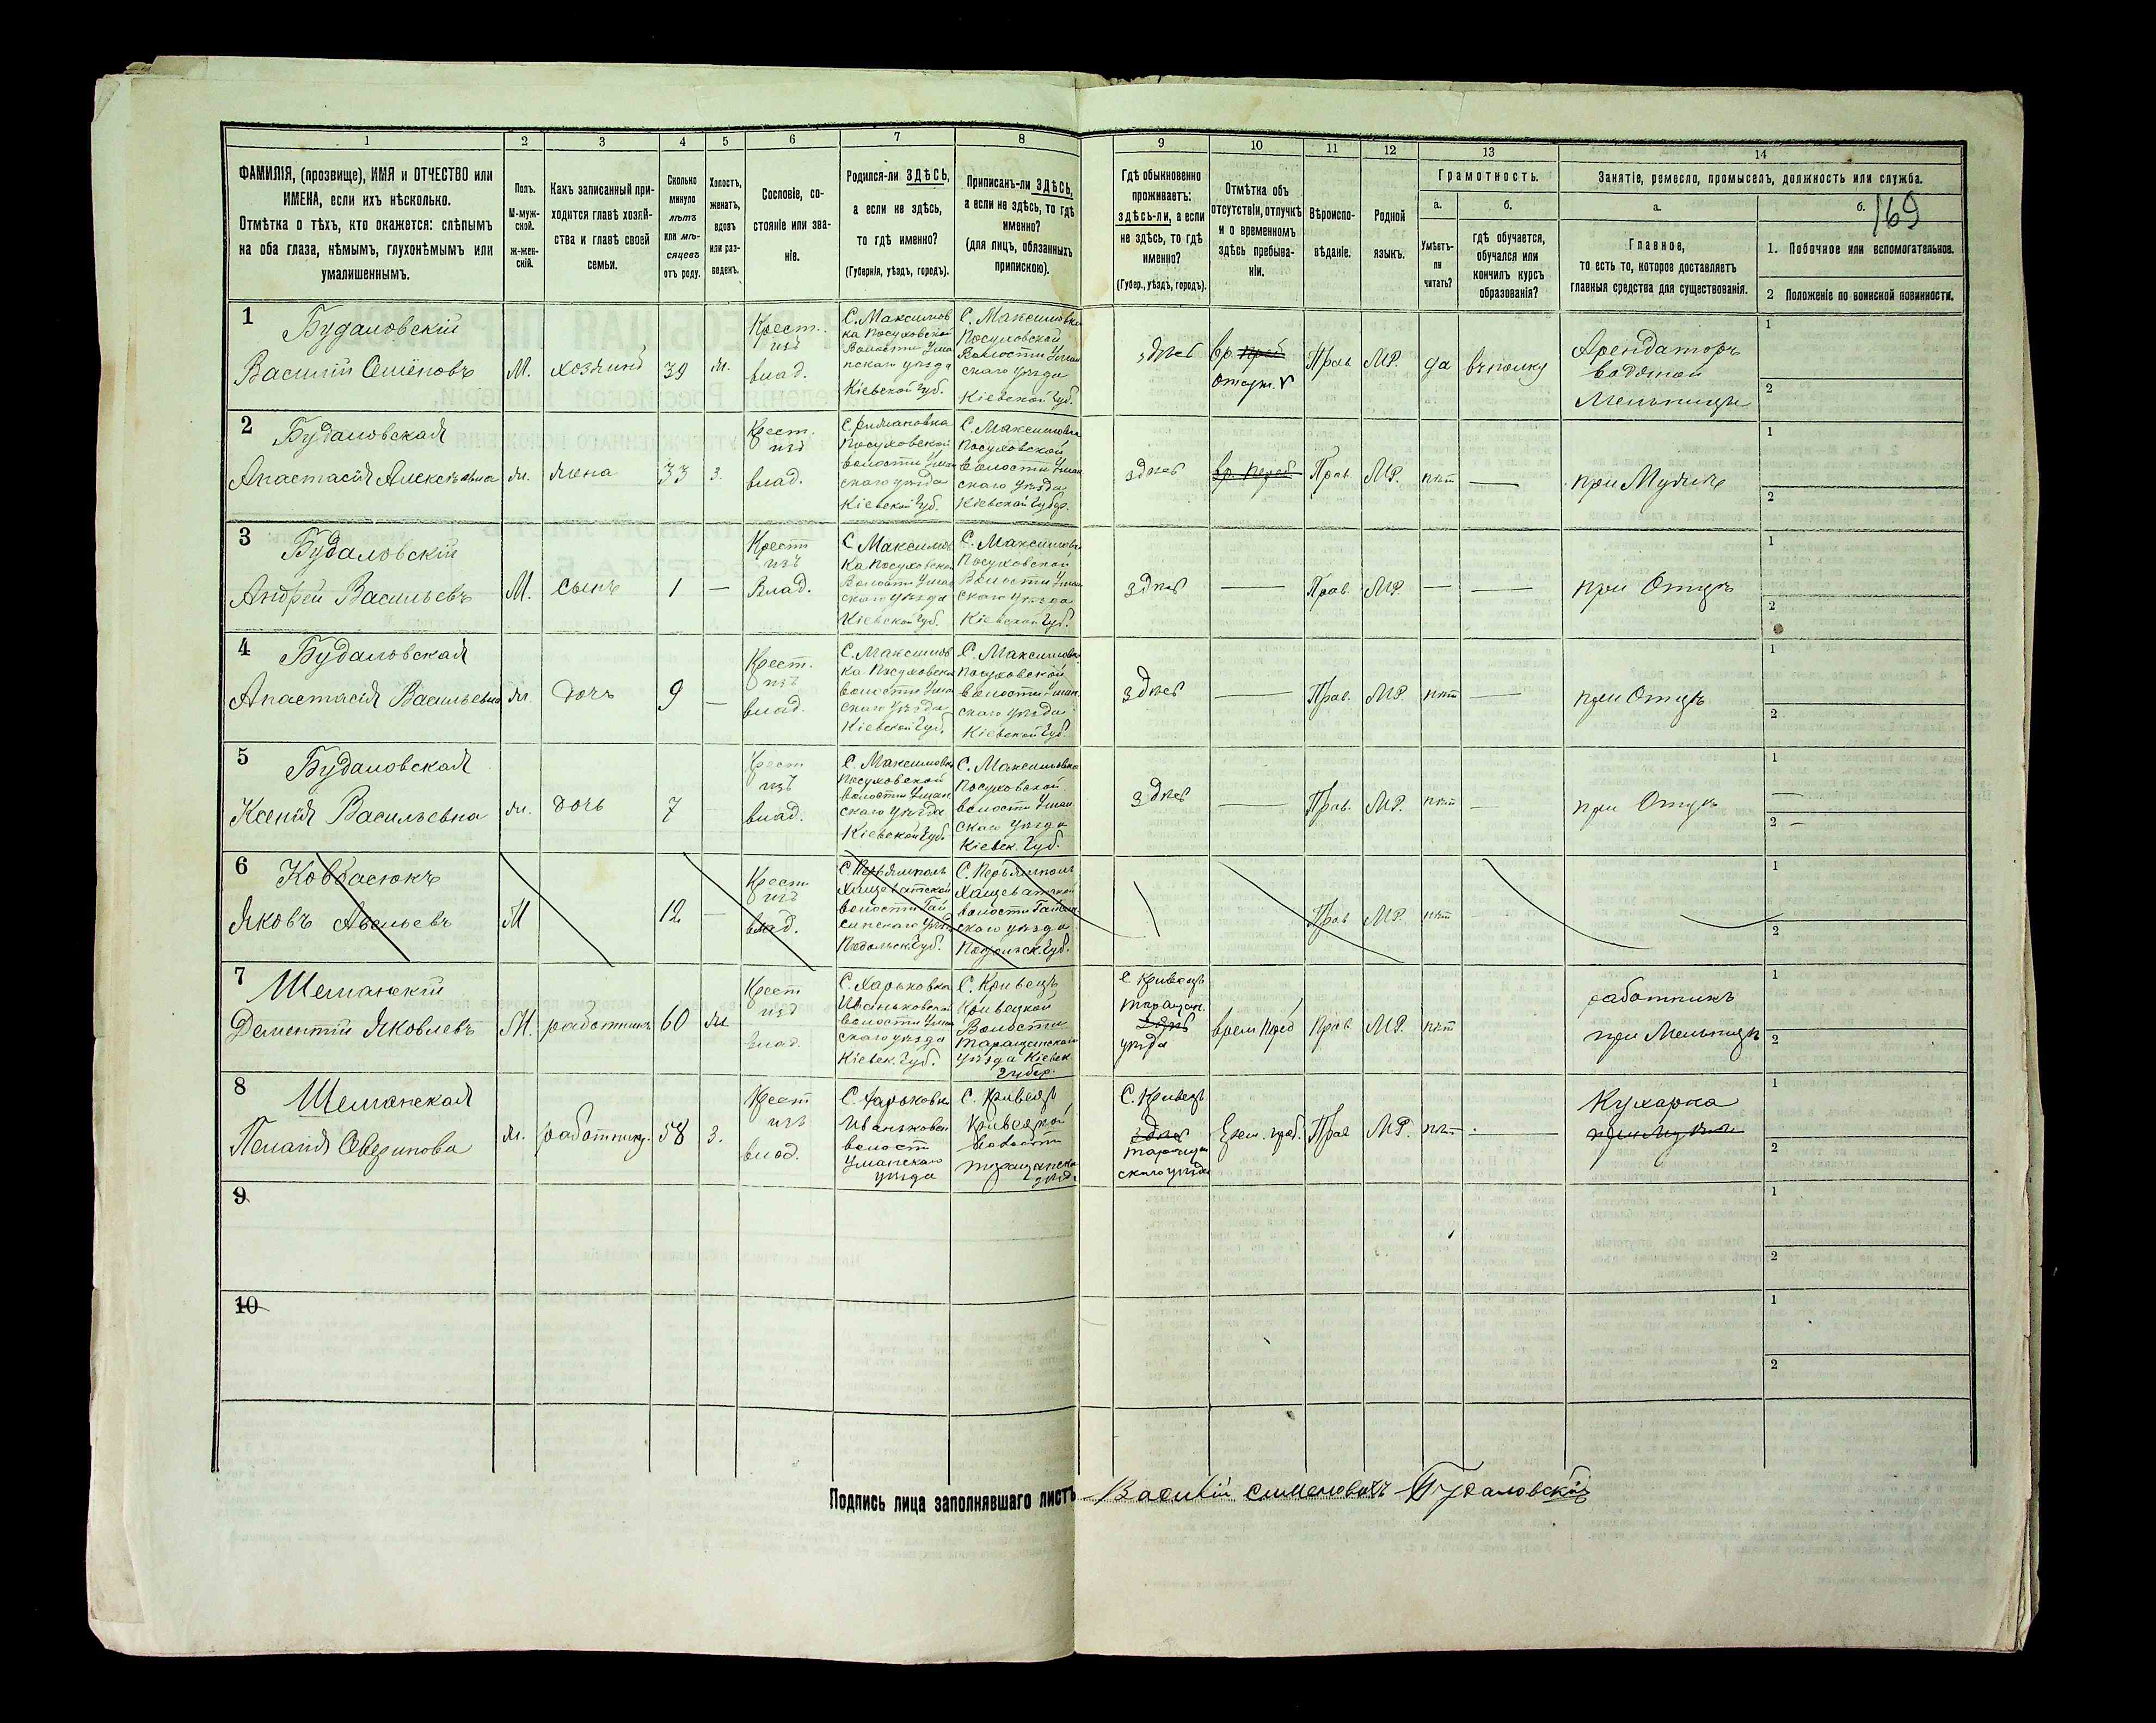 1
2
3
4
5
6
7
8
9
10
11
12
13
14
169
ФАМИЛІЯ, (прозвище), ИМЯ и ОТЧЕСТВО или
ИМЕНА, если ихъ нѣсколько.
Отмѣтка о тѣхъ, кто окажется: слѣпымъ
на оба глаза, нѣмымъ, глухонѣмымъ или
умалишеннымъ.
Полъ.
М-муж-
ской.
Ж-жен-
скій.
Какъ записанный при-
ходится главѣ хозяй-
ства и главѣ своей
семьи.
Сколько
минуло
лѣтъ
или мѣ-
сяцевъ
отъ роду.
Холостъ,
женатъ,
вдовъ
или раз-
веденъ.
Сословіе, со-
стояніе или зва-
ніе.
Родился-ли ЗДѢСЬ,
а если не здѣсь,
то гдѣ именно?
(Губернія, уѣздъ, городъ).
Приписанъ-ли ЗДѢСЬ,
а если не здѣсь, то гдѣ
именно?
(для лицъ, обязанныхъ
припискою).
Гдѣ обыкновенно
проживаетъ:
здѣсь-ли, а если
не здѣсь, то гдѣ
именно?
(Губер., уѣздъ, городъ).
Отмѣтка объ
отсутствіи, отлучкѣ
и о временномъ
здѣсь пребыва-
ніи.
Вѣроиспо-
вѣданіе.
Родной
языкъ.
Грамотность.
а.
Умѣетъ-
ли
читать?
б.
гдѣ обучается,
обучался или
кончилъ курсъ
образованія?
Занятіе, ремесло, промыселъ, должность или служба.
а.
Главное,
то есть то, которое доставляетъ
главныя средства для существованія.
б.
1. Побочное или вспомогательное.
2 Положеніе по воинской повинности.
1
Будаловскій
Василій Семёновъ
М.
хозяинъ
39
ж.
Крест.
изъ
влад.
С. Максимов
ка Посуховской
Волости Ума
нскаго уѣзда
Кіевской Губ.
С. Максимовка
Посуховской
Волости Уман
скаго уѣзда
Кіевской Губ.
здѣсь
вр.
Прав.
МР.
да
въ полку
Арендаторъ
водяной
Мельницы
1
2
2
Будаловская
Анастасія Алексѣевна
ж.
жена
33
з.
Крест.
изъ
влад.
Посуховской
волости Уман
скаго уѣзда
Кіевской Губ.
С. Максимовка
Посуховской
Волости Уман
скаго уѣзда
Кіевской Губер.
здѣсь
Прав.
МР.
нѣт
при Мужѣ
1
2
3
Будаловскій
Андрей Васильевъ
М.
сынъ
1
Крест
изъ
Влад.
С Максимов
ка Посуховской
Волости Уман
скаго уѣзда
Кіевской Губ.
С. Максимовка
Посуховской
Волости Уман
скаго уѣзда
Кіевской Губ.
здѣсь
Прав.
МР.
при Отцѣ
1
2
4
Будаловская
Анастасія Васильевна
ж.
дочь
9
Крест.
изъ
влад.
С. Максимов
ка Посуховской
волости Уман
скаго уѣзда
Кіевской Губ.
С. Максимовка
Посуховской
волости Уман.
скаго уѣзда
Кіевской Губ.
здѣсь
Прав.
МР.
нѣт
при Отцѣ
1
2
5
Будаловская
Ксенія Васильевна
ж.
дочь
7
Крест
изъ
влад.
С. Максимовка
Посуховской
волости Уман
скаго уѣзда
Кіевской Губ.
С. Максимовка
Посуховской
волости Уман
скаго уѣзда
Кіевск. Губ.
здѣсь
Прав.
МР.
нѣт
при Отцѣ
1
2
6
Ковбасюкъ
Яковъ
М
12
Крест
изъ
влад.
Хащеватской
волости Гай
синскаго уѣзд
Подольск. Губ.
Хащеватской
волости Гайсин
скаго уѣзда
Подольск. Губ.
Прав
МР.
нѣт
1
2
7
Шеманскій
Дементій Яковлевъ
М.
работникъ
60
ж
Крест
изъ
влад.
С. Харьковка
Иваньковской
волости Уман
скаго уѣзда
Кіевск. Губ.
С. Кривецъ
Кривецкой
Волости
Таращанскаго
уѣзда Кіевск.
Губер.
С. Кривецъ
Таращан.
здѣсь
уѣзда
врем преб
Прав.
МР.
нѣт
работникъ
при Мельницѣ
1
2
8
Шеманская
Пелагія
ж.
работниц.
58
з.
Крест
изъ
влад.
С. Харьковка
Иваньковск
волост
Уманскаго
уѣзда
С. Кривецъ
Кривецкой
Волости
Таращанска
уѣзд.
С. Кривецъ
здѣсь
Таращан
скаго уѣзда
Врем. преб.
Прав
МР.
нѣт
Кухарка
1
2
9
1
2
10
1
2
Подпись лица заполнявшаго листъ Василій Сименовичъ Будаловскій